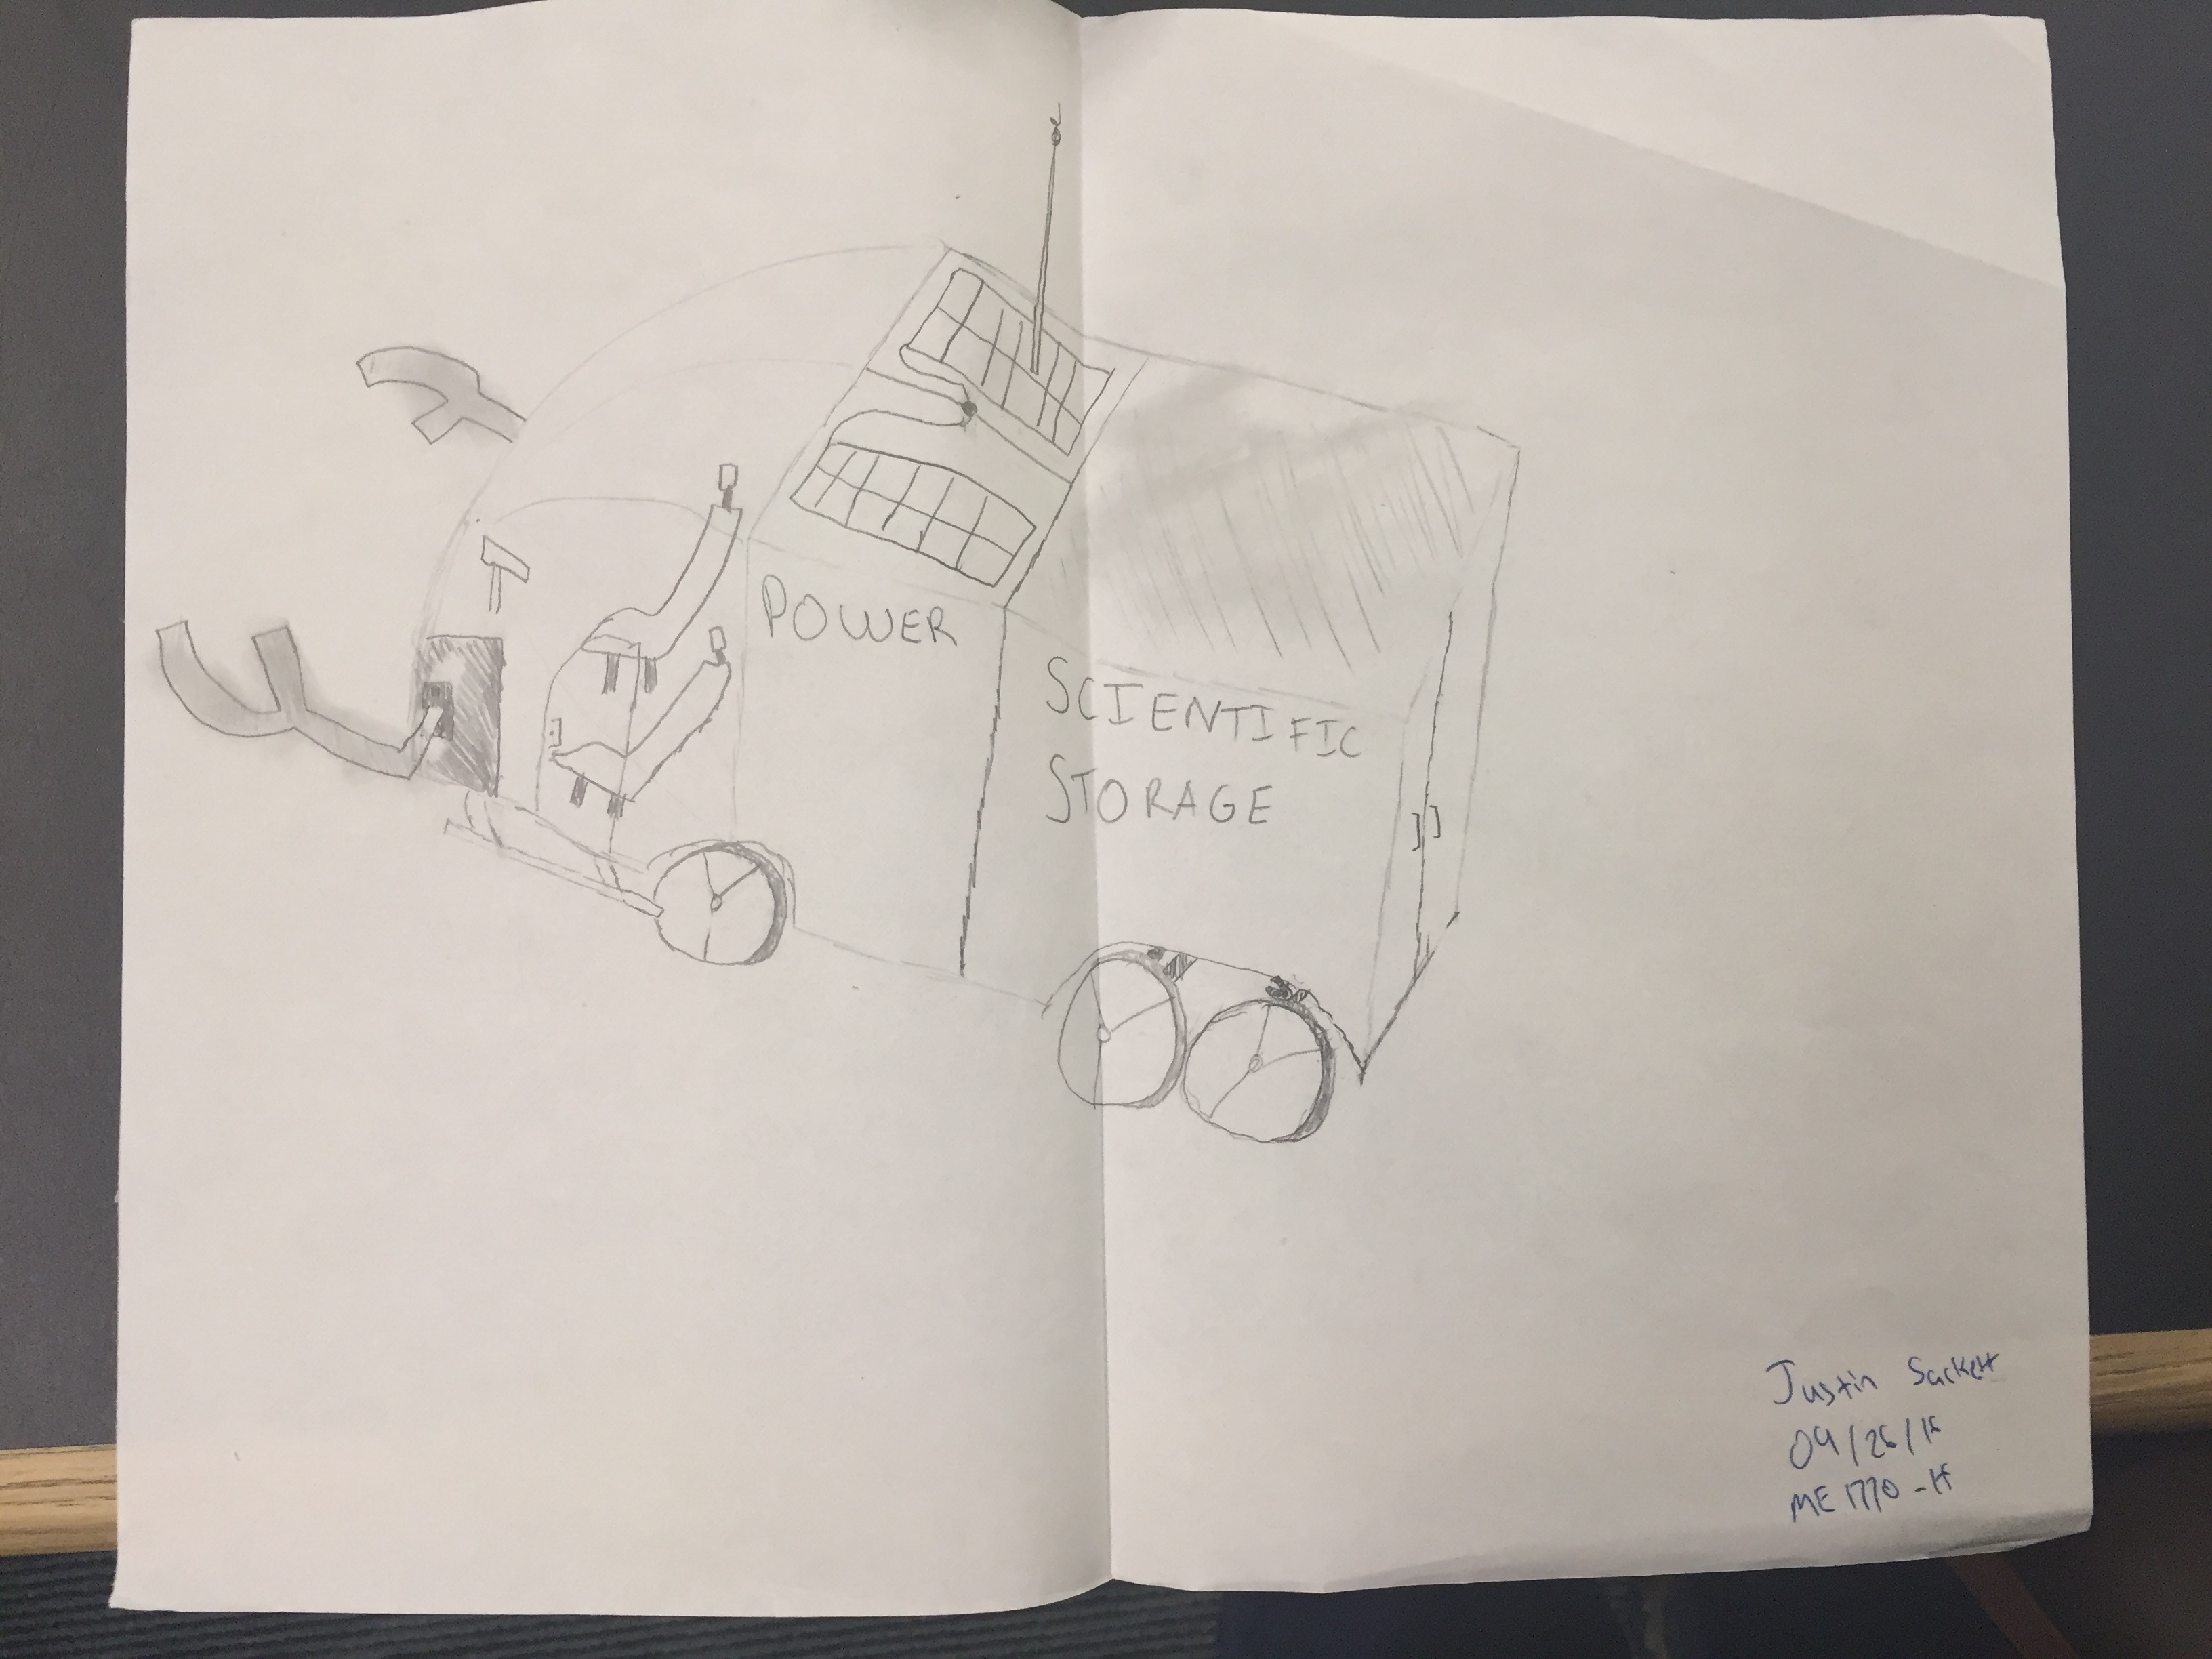 POWER
SCIENTIFIC
STORAGE
Justin Sackett
ME 1770 - H